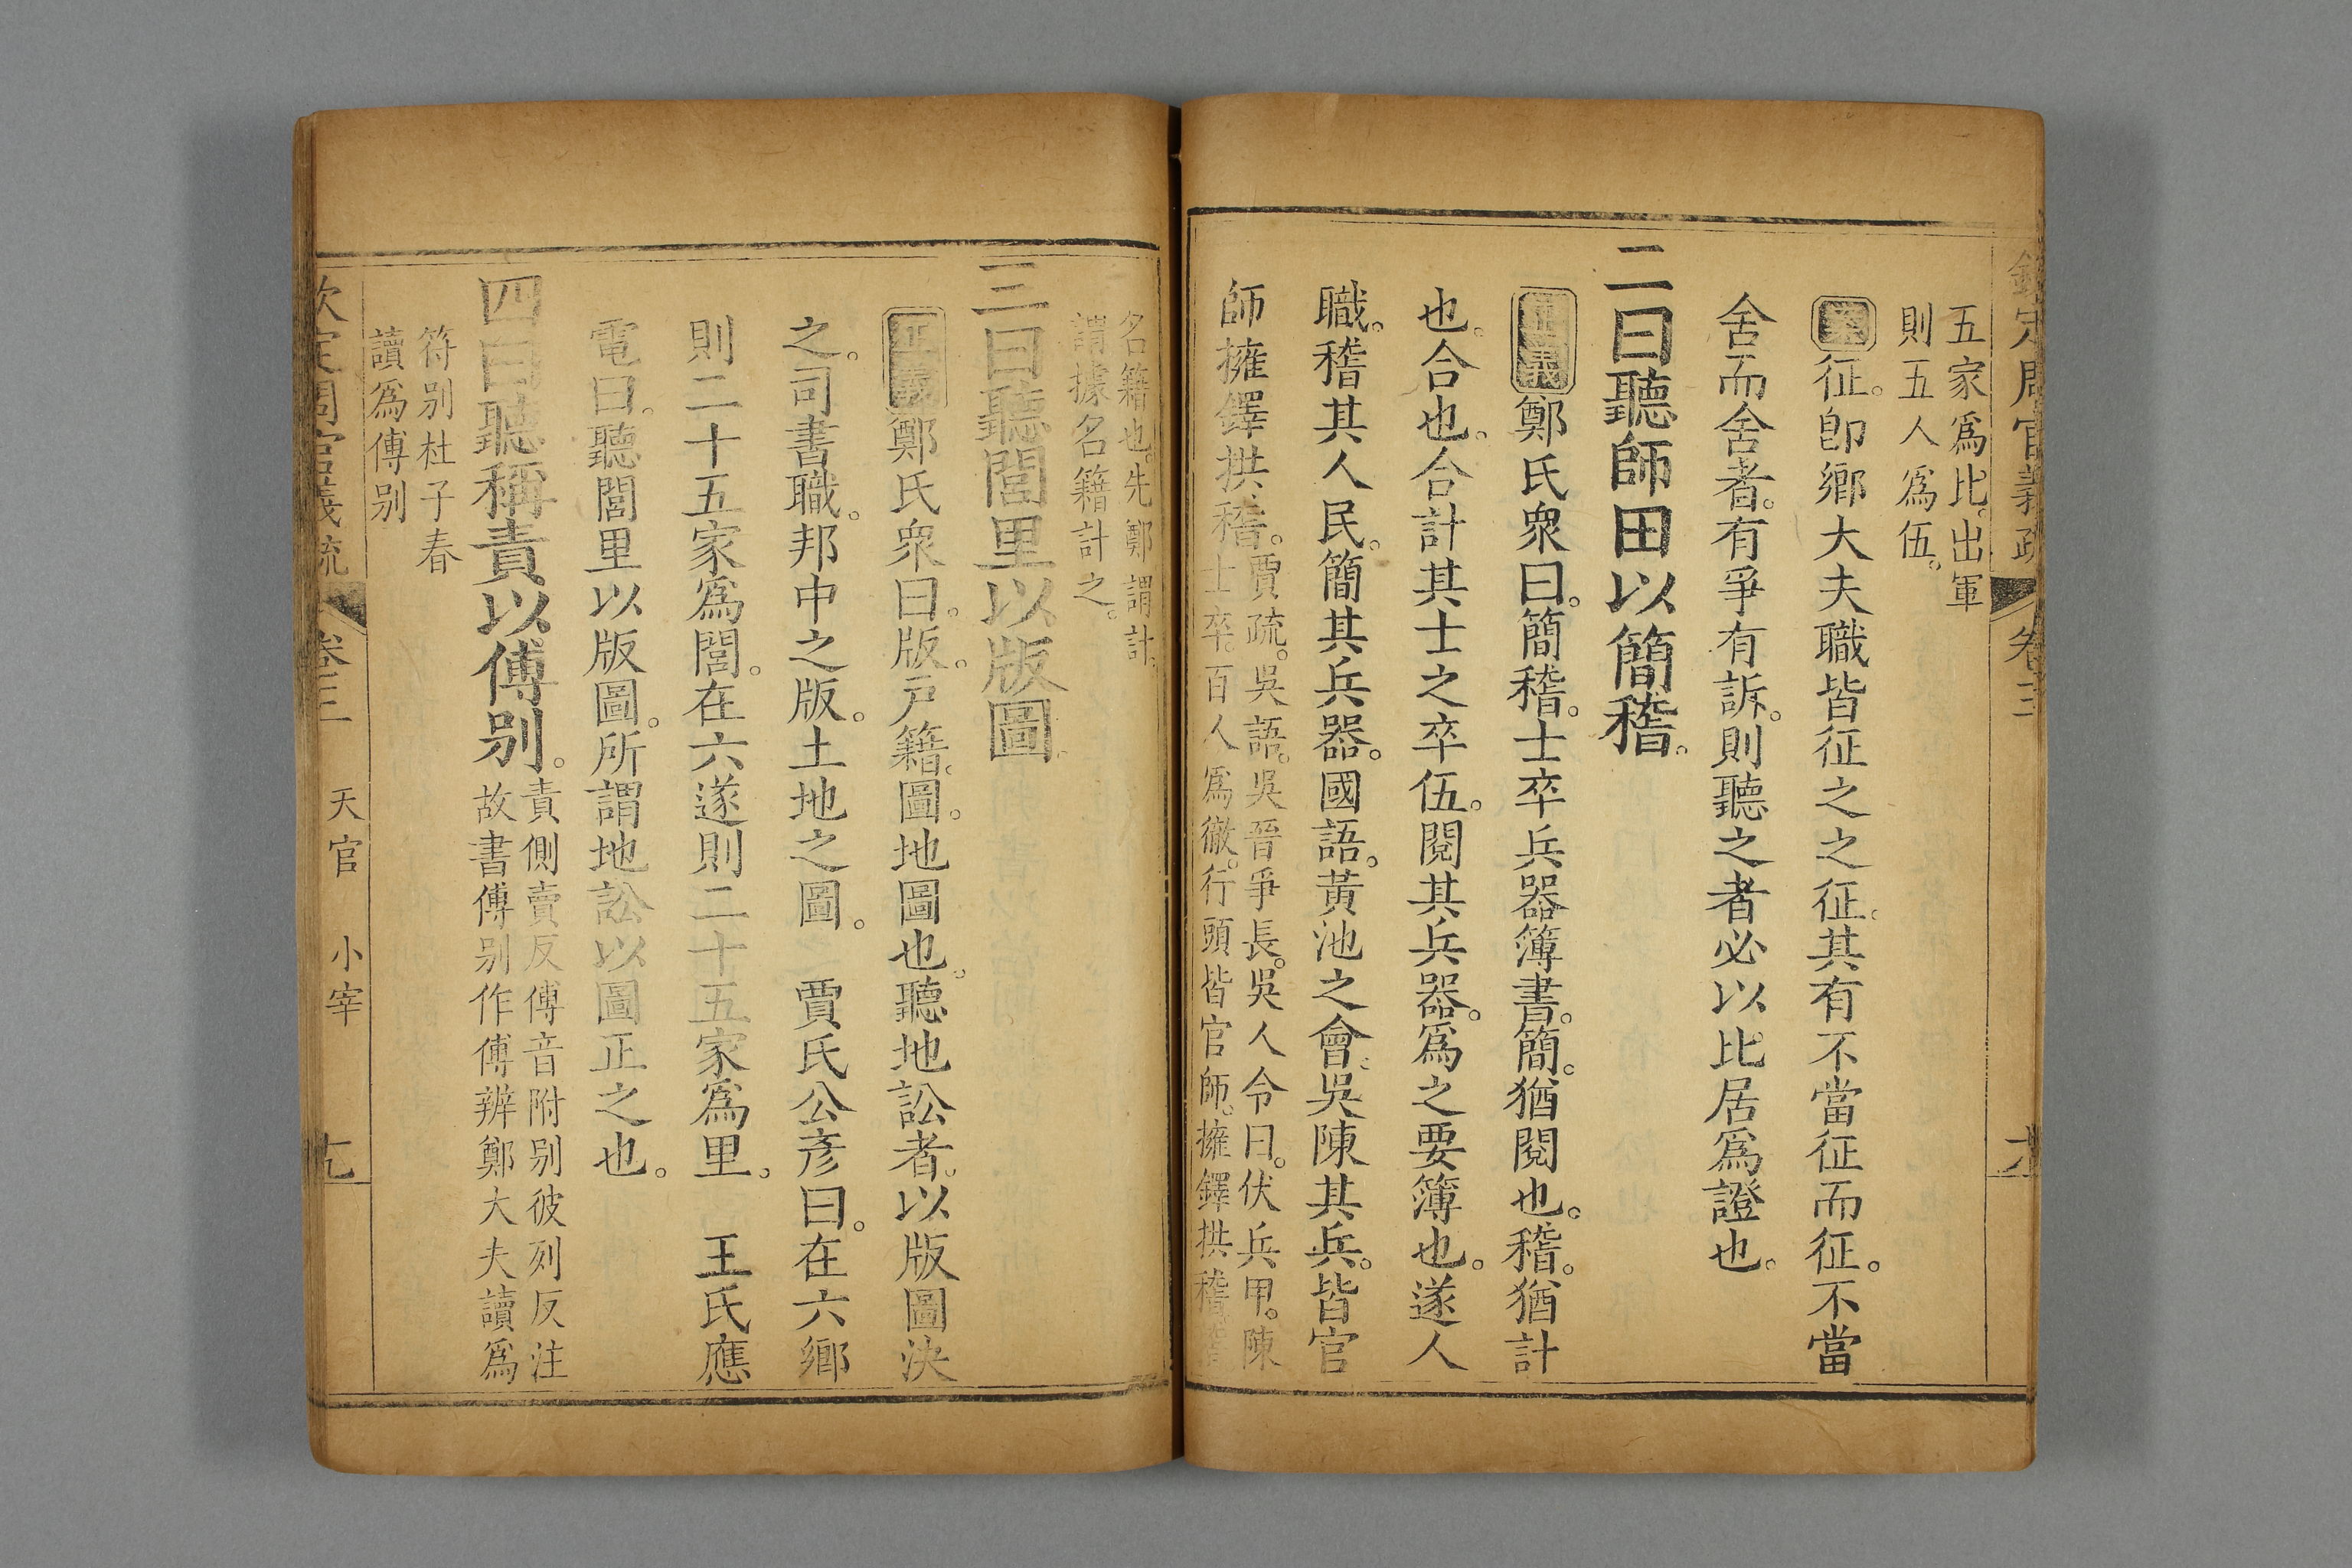 欽定周官義疏 卷三
五家爲比。出軍
則五人爲伍。
案征。卽鄉大夫職皆征之之征。其有不當征而征。不當
舍而舍者。有爭有訴。則聽之者必以比居爲證也。
二曰聽師田以簡稽。
正義鄭氏衆曰。簡稽。士卒兵器簿書。簡。猶閱也。稽。猶計
也。合也。合計其士之卒伍。閱其兵器。爲之要簿也。遂人
職。稽其人民。簡其兵器。國語。黃池之會。吳陳其兵。皆官
師擁鐸拱稽。賈疏。吳語。吳晉爭長。吳人令曰。伏兵甲。陳
士卒。百人爲徹。行頭皆官師。擁鐸拱稽。
名籍也。先鄭謂計。
謂據名籍計之。
三曰聽閭里以版圖。
正義鄭氏衆曰。版。戸籍。圖。地圖也。聽地訟者。以版圖決
之。司書職。邦中之版。土地之圖。 賈氏公彥曰。在六鄉
則二十五家爲閭。在六遂則二十五家爲里。 王氏應
電曰。聽閭里以版圖。所謂地訟以圖正之也。
四曰聽稱責以傅别。責側賣反傅音附别彼列反注
故書傅别作傅辨鄭大夫讀爲
符别杜子春
讀爲傅别
欽定周官義疏 卷三 天官 小宰